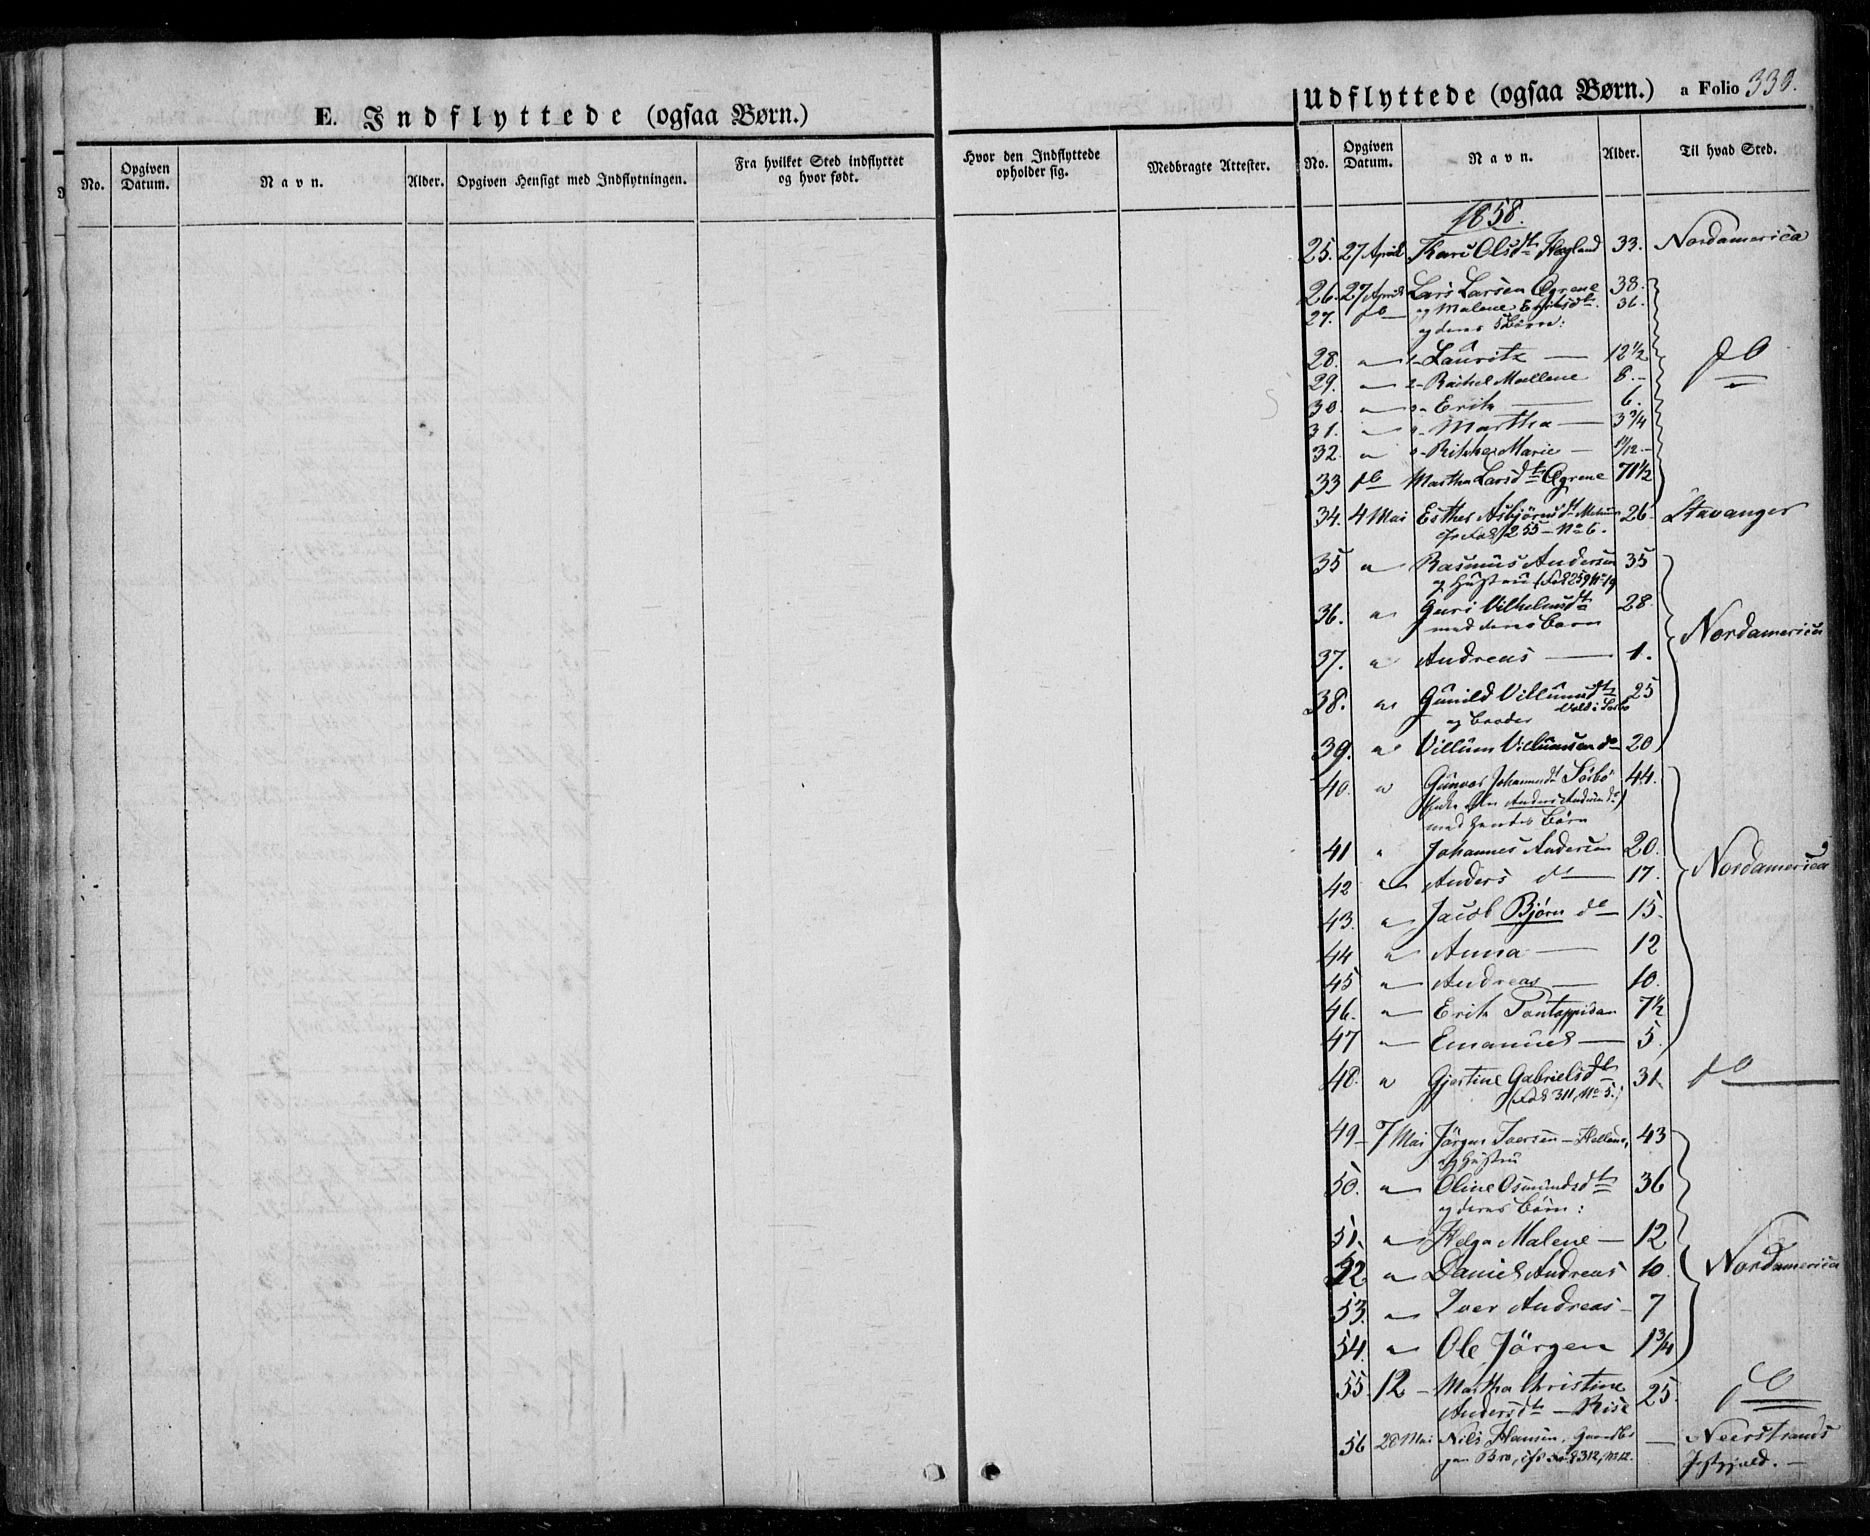 E. Indflyttede (ogsaa Børn.)
No. Opgiven Datum. Navn. Alder. Opgiven Hensigt med Indflytningen. Fra hvilket Sted indflyttet og hvor født.
Hvor den Indflyttede opholder sig. Medbragte Attester.
Udflyttede (ogsaa Børn.) a Folio 330.
No. Opgiven Datum. Navn. Alder. Til hvad Sted.
1858.
25. 27 April Kari Olsdtr 33. Nordamerica
26. 27 April Lars Larsen Øgrene 38.
27. do og Malene Eriksdtr 36.
og deres 5 Børn:
28. " 1- Lauritz — 12 1/2 do
29. " 2- Rachel Mallene 8.
30. " 3- Erik — 6.
31. " 4- Martha — 3 3/4
32. " 5- Rikke Marie — 11/12
33 do Martha Larsdtr Øgrene 71 1/2
34. 4 Mai Esther Asbjørnsdt 26 Stavanger
Fol 255 – No 6.
35 " Rasmus Andersen 35
og Hustru (Fol 259 No 19
36. " Guri Vilhelmsdtr 28.
med deres Barn
37. " Andreas — 1. Nordamerica
38. " Gunild Villumsdtr 25
og Broder
39. " Villum Villumsen do 20
40. " Gunvor Johannesdt Sørbø 44.
med hendes Børn
41 " Johannes Andersen 20.
42 " Anders do 17. Nordamerica
43. " Jacob Bjørn do 15.
44 " Anna — 12
45 " Andreas — 10.
46. " Erik Pontoppidan 7 1/2
47 " Emanuel — 5.
48. " Gjertine Gabrielsdtr 31 do
(Fol 311, No 5.)
49 – 7 Mai Jørgen Iversen – 43
og Hustru
50. " Oline Osmundsdtr 36
og deres Børn:
51. " Helga Malene — 12
52 " Daniel Andreas 10. Nordamerica
53. " Iver Andreas – 7
54. " Ole Jørgen 1 3/4
55. 12 – Martha Christine 25. do
Andersdtr – Rise
56 28 Mai Nils Hansen, — Neerstrands
Bro, Fol 312, No 12. Præstgjeld. –